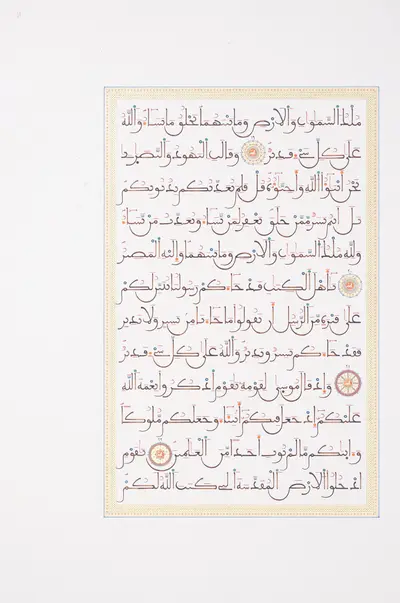 ملك السموات والارض وما بينهما يخلق ما يشاء والله
على كل شيء قدير وقالت اليهود والنصرى
نحن ابنؤا الله واحبؤه قل فلم يعذبكم بذنوبكم
بل انتم بشر ممن خلق يغفر لمن يشاء ويعذب من يشاء
ولله ملك السموات والارض وما بينهما واليه المصير
يأهل الكتب قد جاءكم رسولنا يبين لكم
على فترة من الرسل ان تقولوا ما جاءنا من بشير ولا نذير
فقد جاءكم بشير ونذير والله على كل شيء قدير
واذ قال موسى لقومه يقوم اذكروا نعمة الله
عليكم اذ جعل فيكم انبياء وجعلكم ملوكا
وءاتيكم ما لم يوت احدا من العلمين يقوم
ادخلوا الارض المقدسة التي كتب الله لكم